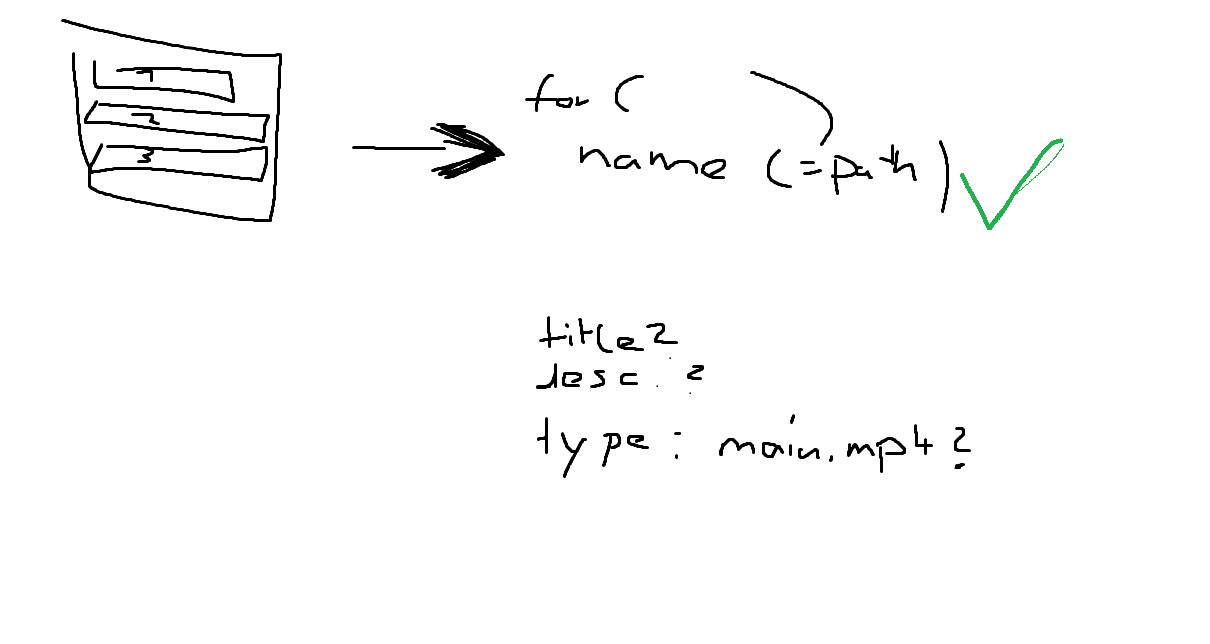 1
2
3
for ( )
name (=path)
title?
desc. ?
type: main.mp4?